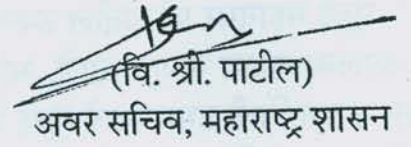 (वि. श्री. पाटील)
अवर सचिव, महाराष्ट्र शासन